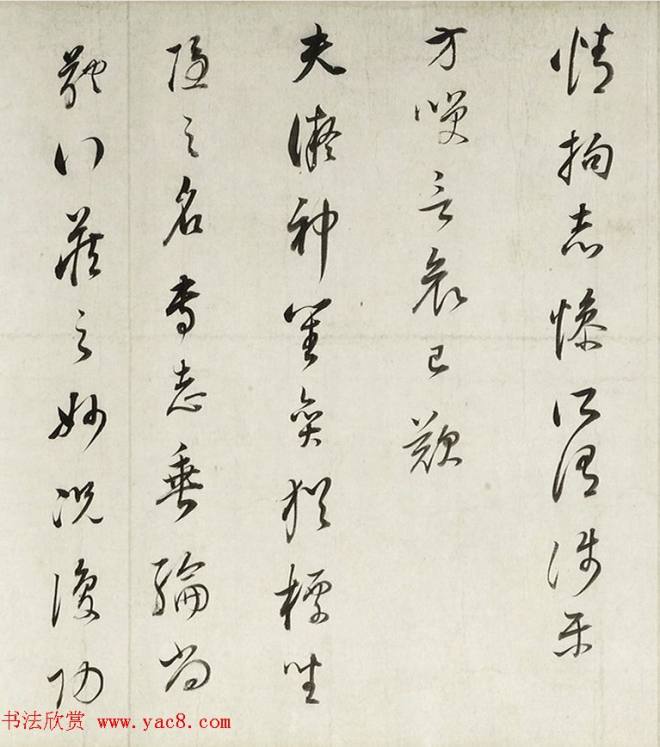 情拘志慘所謂涉樂
方咲言哀已歎
夫潛神對奕猶標坐
隱之名專志垂綸尚
體行藏之妙況復功
书法欣赏 www.yac8.com